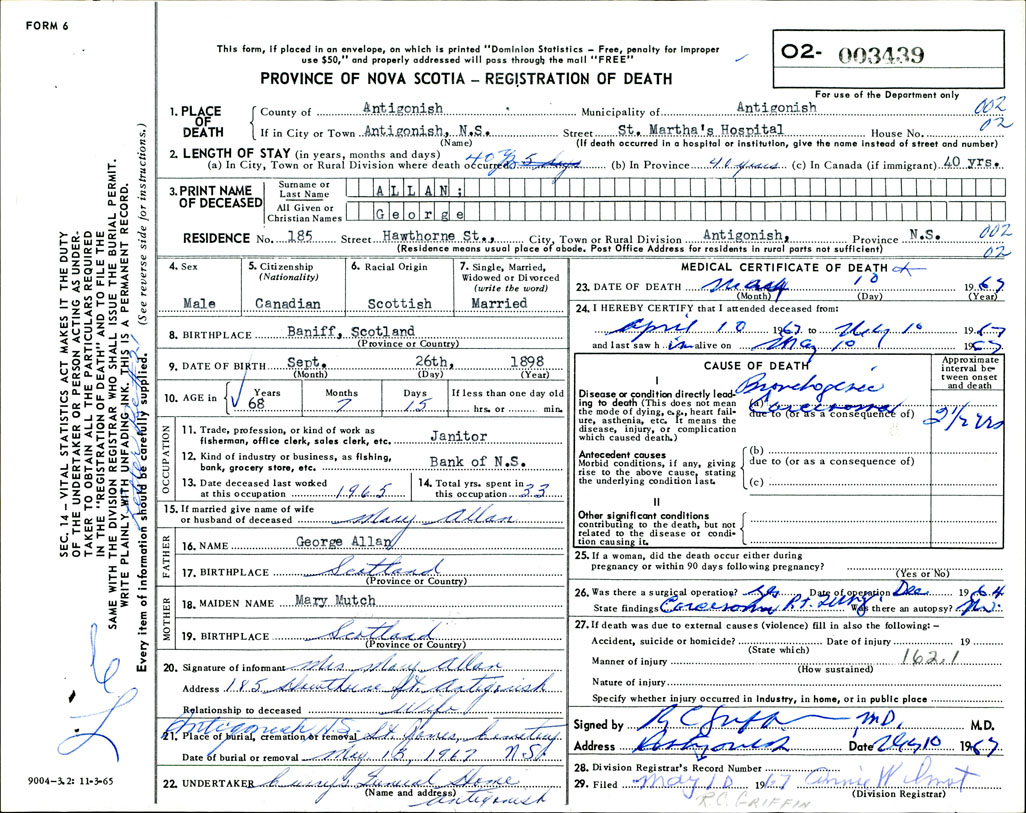 FORM 6
This form, if placed in an envelope, on which is printed "Dominion Statistics – Free, penalty for improper
use $50," and properly addressed will pass through the mail "FREE"
PROVINCE OF NOVA SCOTIA – REGISTRATION OF DEATH
O2- 003439
For use of the Department only
1. PLACE OF DEATH
County of Antigonish Municipality of Antigonish 002
If in City or Town Antigonish, N.S. Street St. Martha's Hospital House No. 02
(Name) (If death occurred in a hospital or institution, give the name instead of street and number)
2. LENGTH OF STAY (in years, months and days)
(a) In City, Town or Rural Division where death occurred 40 (b) In Province 40 years (c) In Canada (if immigrant) 40 yrs.
3. PRINT NAME OF DECEASED
Surname or Last Name ALLAN;
All Given or Christian Names George
RESIDENCE No. 185 Street Hawthorne St., City, Town or Rural Division Antigonish, Province N.S. 002
(Residence means usual place of abode. Post Office Address for residents in rural parts not sufficient) 02
4. Sex Male
5. Citizenship (Nationality) Canadian
6. Racial Origin Scottish
7. Single, Married, Widowed or Divorced (write the word) Married
8. BIRTHPLACE Baniff, Scotland
(Province or Country)
9. DATE OF BIRTH Sept. 26th, 1898
(Month) (Day) (Year)
10. AGE in Years 68 Months 7 Days 15 If less than one day old hrs. or min.
OCCUPATION
11. Trade, profession, or kind of work as
fisherman, office clerk, sales clerk, etc. Janitor
12. Kind of industry or business, as fishing,
bank, grocery store, etc. Bank of N.S.
13. Date deceased last worked
at this occupation 1965
14. Total yrs. spent in
this occupation 33
15. If married give name of wife
or husband of deceased Mary Allan
FATHER
16. NAME George Allan
17. BIRTHPLACE Scotland
(Province or Country)
MOTHER
18. MAIDEN NAME Mary Mutch
19. BIRTHPLACE Scotland
(Province or Country)
20. Signature of informant Mrs Mary Allan
Address 185 Hawthorne St. Antigonish
Relationship to deceased Wife
Antigonish NS
21. Place of burial, cremation or removal cemetery
Date of burial or removal May 13, 1967 N.S.
22. UNDERTAKER Funeral Home
(Name and address) Antigonish
MEDICAL CERTIFICATE OF DEATH
23. DATE OF DEATH May 10 1967
(Month) (Day) (Year)
24. I HEREBY CERTIFY that I attended deceased from:
April 10 1967 to May 10 1967
and last saw h im alive on May 10 1967
CAUSE OF DEATH
Approximate interval between onset and death
I
Disease or condition directly leading to death (This does not mean the mode of dying, e.g., heart failure, asthenia, etc. It means the disease, injury, or complication which caused death.)
Bronchogenic
(a) Carcinoma
due to (or as a consequence of)
2 1/2 yrs
Antecedent causes
Morbid conditions, if any, giving rise to the above cause, stating the underlying condition last.
(b)
due to (or as a consequence of)
(c)
II
Other significant conditions
contributing to the death, but not related to the disease or condition causing it.
25. If a woman, did the death occur either during
pregnancy or within 90 days following pregnancy?
(Yes or No)
26. Was there a surgical operation? yes Date of operation Dec. 1964
State findings Carcinoma Rt. Lung Was there an autopsy? No
27. If death was due to external causes (violence) fill in also the following: –
Accident, suicide or homicide? Date of injury 19
(State which)
Manner of injury 162.1
(How sustained)
Nature of injury
Specify whether injury occurred in industry, in home, or in public place
Signed by M.D. M.D.
Address Antigonish Date May 10 1967
28. Division Registrar's Record Number
29. Filed May 10 1967 Annie W
(Division Registrar)
R.C. GRIFFIN
SEC. 14 – VITAL STATISTICS ACT MAKES IT THE DUTY
OF THE UNDERTAKER OR PERSON ACTING AS UNDER-
TAKER TO OBTAIN ALL THE PARTICULARS REQUIRED
IN THE "REGISTRATION OF DEATH" AND TO FILE THE
SAME WITH THE DIVISION REGISTRAR WHO SHALL ISSUE THE BURIAL PERMIT.
WRITE PLAINLY, WITH UNFADING INK. THIS IS A PERMANENT RECORD.
Every item of information should be carefully supplied. (See reverse side for instructions.)
9004-3.2: 11-3-65